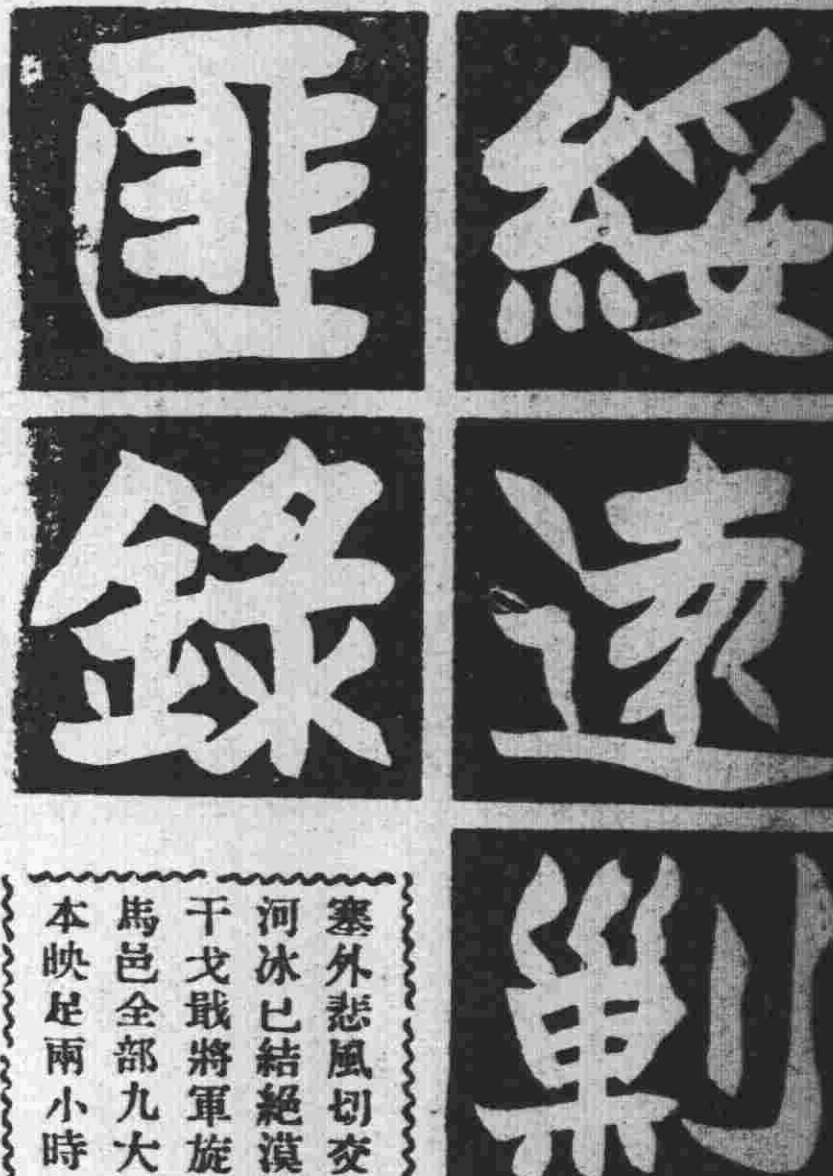 綏遠剿
匪錄
塞外悲風切交
河冰已結絕漠
干戈戢將軍旋
馬邑全部九大
本映足兩小時